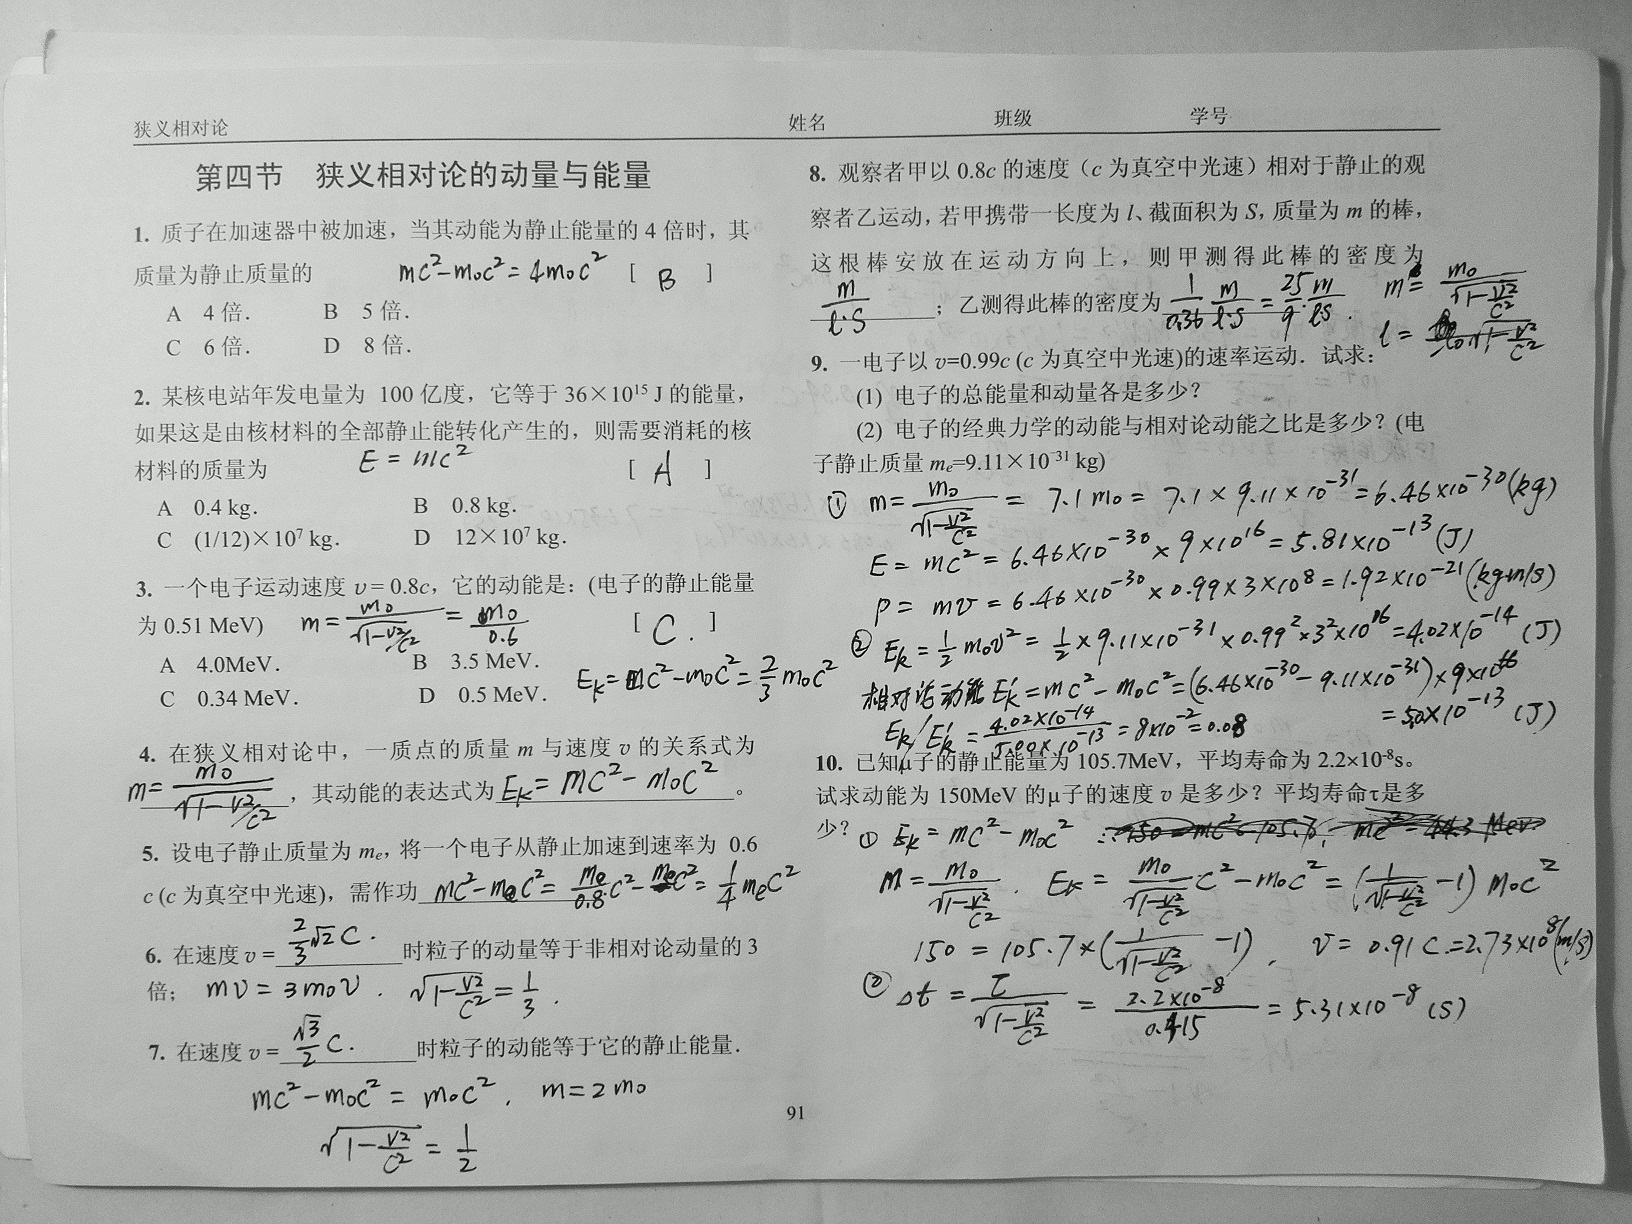 狭义相对论 姓名 班级 学号
第四节 狭义相对论的动量与能量
1. 质子在加速器中被加速，当其动能为静止能量的 4 倍时，其
质量为静止质量的 mc²-m₀c²=4m₀c² [ B ]
A 4 倍． B 5 倍．
C 6 倍． D 8 倍．
2. 某核电站年发电量为 100 亿度，它等于 36×10¹⁵ J 的能量，
如果这是由核材料的全部静止能转化产生的，则需要消耗的核
材料的质量为 E=mc² [ A ]
A 0.4 kg． B 0.8 kg．
C (1/12)×10⁷ kg． D 12×10⁷ kg．
3. 一个电子运动速度 υ = 0.8c，它的动能是：(电子的静止能量
为 0.51 MeV) m=m₀/√(1-v²/c²)=m₀/0.6 [ C. ]
A 4.0MeV． B 3.5 MeV．
C 0.34 MeV． D 0.5 MeV． Ek=mc²-m₀c²=2/3 m₀c²
4. 在狭义相对论中，一质点的质量 m 与速度 υ 的关系式为
m=m₀/√(1-v²/c²)，其动能的表达式为 Ek=mc²-m₀c²。
5. 设电子静止质量为 mₑ, 将一个电子从静止加速到速率为 0.6
c (c 为真空中光速)，需作功 mc²-mₑc²=mₑ/0.8 c²-mₑc²=1/4 mₑc²
6. 在速度 υ = 2/3 √2 c. 时粒子的动量等于非相对论动量的 3
倍； mv=3m₀v. √(1-v²/c²)=1/3.
7. 在速度 υ = √3/2 c. 时粒子的动能等于它的静止能量．
mc²-m₀c²=m₀c², m=2m₀
√(1-v²/c²)=1/2
8. 观察者甲以 0.8c 的速度（c 为真空中光速）相对于静止的观
察者乙运动, 若甲携带一长度为 l、截面积为 S, 质量为 m 的棒，
这根棒安放在运动方向上，则甲测得此棒的密度为
m/(l·S) ；乙测得此棒的密度为 1/0.36 m/(l·S)=25/9·m/(lS). m=m₀/√(1-v²/c²)
l=l₀√(1-v²/c²)
9. 一电子以 υ=0.99c (c 为真空中光速)的速率运动．试求：
(1) 电子的总能量和动量各是多少？
(2) 电子的经典力学的动能与相对论动能之比是多少？(电
子静止质量 mₑ=9.11×10⁻³¹ kg)
① m=m₀/√(1-v²/c²)=7.1m₀=7.1×9.11×10⁻³¹=6.46×10⁻³⁰(kg)
E=mc²=6.46×10⁻³⁰×9×10¹⁶=5.81×10⁻¹³(J)
p=mv=6.46×10⁻³⁰×0.99×3×10⁸=1.92×10⁻²¹(kg·m/s)
② Ek=1/2 m₀v²=1/2×9.11×10⁻³¹×0.99²×3²×10¹⁶=4.02×10⁻¹⁴(J)
相对论动能 Ek'=mc²-m₀c²=(6.46×10⁻³⁰-9.11×10⁻³¹)×9×10¹⁶
=5.0×10⁻¹³(J)
Ek/Ek'=4.02×10⁻¹⁴/5.00×10⁻¹³=8×10⁻²=0.08
10. 已知μ子的静止能量为 105.7MeV，平均寿命为 2.2×10⁻⁸s。
试求动能为 150MeV 的μ子的速度 υ 是多少？平均寿命τ是多
少？ ① Ek=mc²-m₀c² ∴150=mc²-105.7, mc²=44.3 MeV
m=m₀/√(1-v²/c²). Ek=m₀/√(1-v²/c²) c²-m₀c²=(1/√(1-v²/c²)-1)m₀c²
150=105.7×(1/√(1-v²/c²)-1), v=0.91c=2.73×10⁸(m/s)
② Δt=τ/√(1-v²/c²)=2.2×10⁻⁸/0.415=5.31×10⁻⁸(s)
91